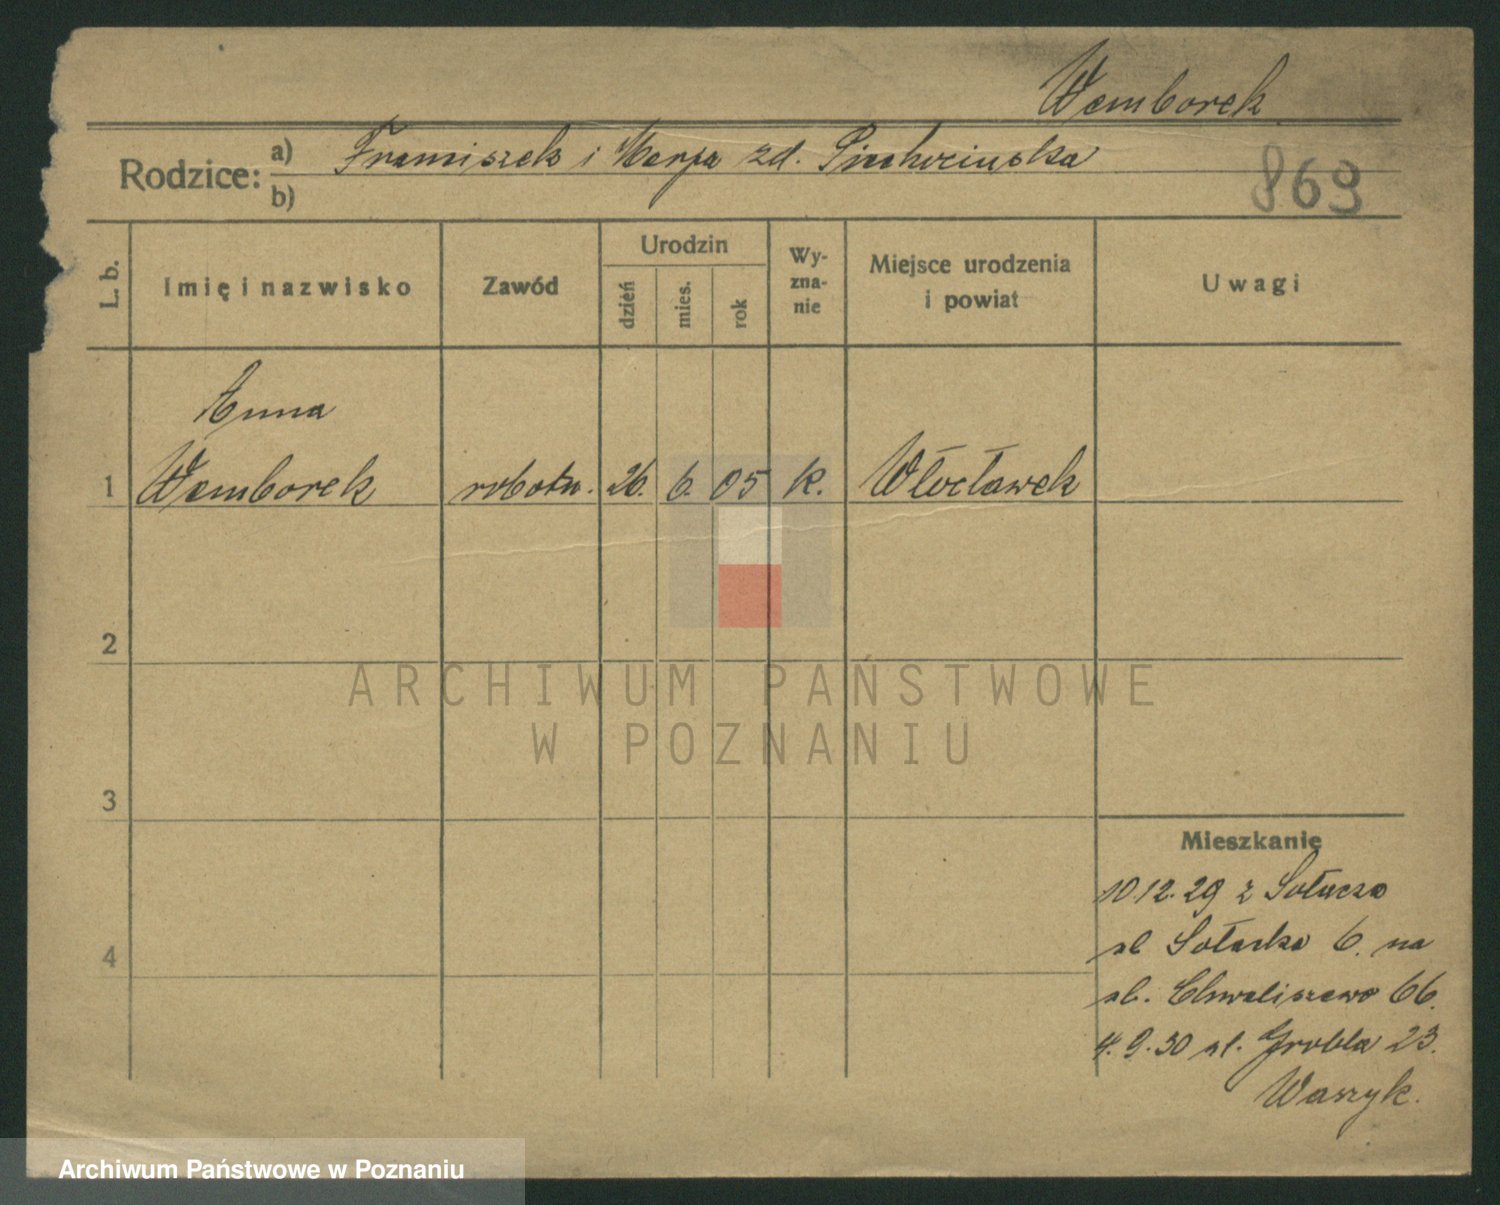 Wemborek
Rodzice: a) Franciszek i Marja zd.
b)
869
L. b.
Imię i nazwisko
Zawód
Urodzin
dzień
mies.
rok
Wy-
zna-
nie
Miejsce urodzenia
i powiat
Uwagi
Anna
1 Wemborek robotn. 26. 6. 05 k. Włocławek
2
3
4
ARCHIWUM PAŃSTWOWE
W POZNANIU
Mieszkanie
10.12.29 z Sołacza
ul Sołacka 6. na
ul. Chwaliszewo 66.
4.9.30 ul. Grobla 23.
Waszyk.
Archiwum Państwowe w Poznaniu